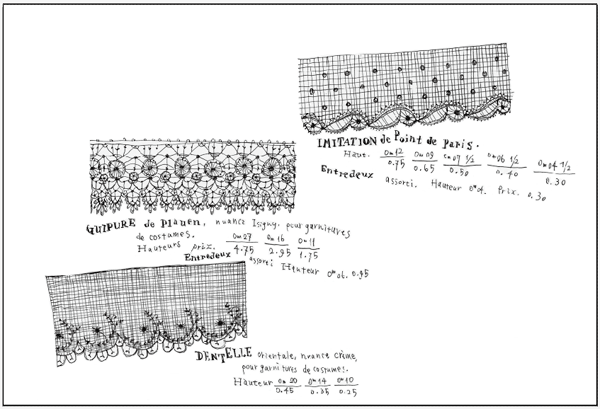 IMITATION de Point de Paris.
Haut. 0m12 0m09 0m07 1/2 0m06 1/2 0m04 1/2
0.75 0.65 0.50 0.40 0.30
Entredeux assorti. Hauteur 0m04. Prix. 0.30
GUIPURE de Plauen, nuance Isigny, pour garnitures
de costumes.
Hauteurs 0m27 0m16 0m11
prix. 4.75 2.95 1.75
Entredeux assorti Hauteur 0m06. 0.95
DENTELLE orientale, nuance crème,
pour garnitures de costumes.
Hauteur 0m20 0m14 0m10
0.45 0.35 0.25